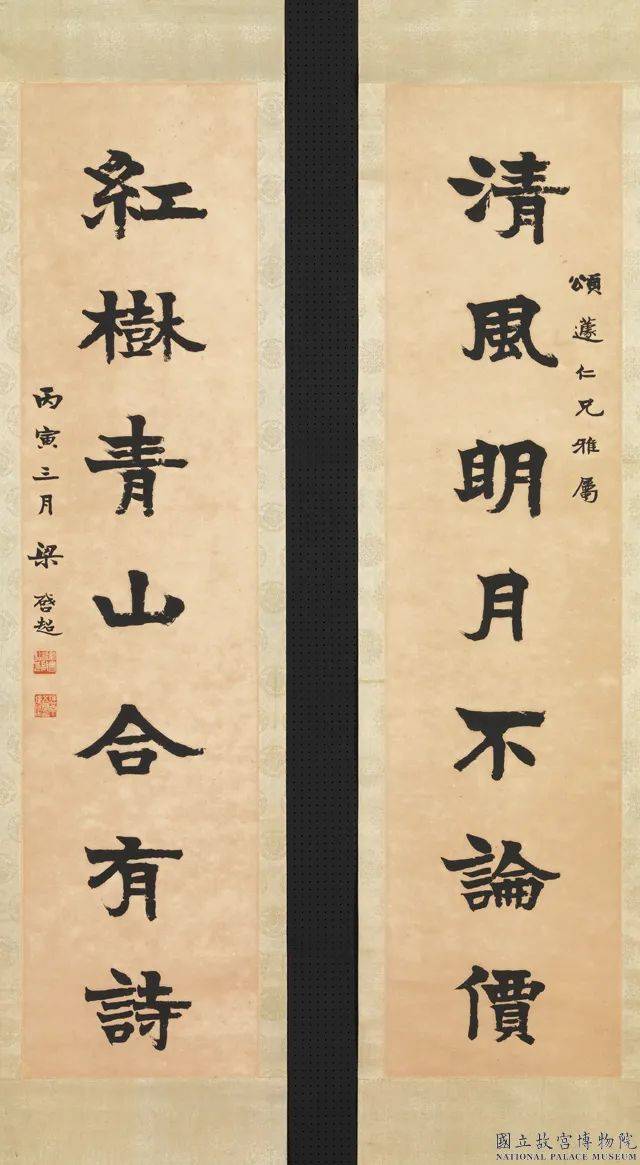 清風明月不論價
頌蘧仁兄雅屬
紅樹青山合有詩
丙寅三月 梁啓超
國立故宮博物院
NATIONAL PALACE MUSEUM